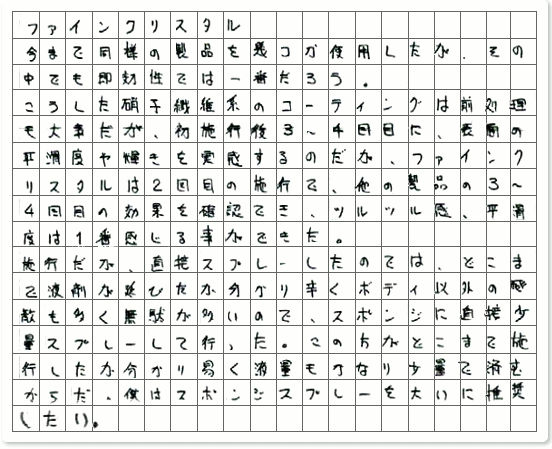 ファインクリスタル
今まで同様の製品を幾コか使用したが、その
中でも即効性では一番だろう。
こうした硝子繊維系のコーティングは前処理
も大事だが、初施行後3～4回目に、表面の
平滑度や輝きを実感するのだが、ファインク
リスタルは2回目の施行で、他の製品の3～
4回目の効果を確認でき、ツルツル感、平滑
度は1番感じる事ができた。
施行だが、直接スプレーしたのでは、どこま
で液剤が延びたか分かり辛くボディ以外の飛
散も多く無駄が多いので、スポンジに直接少
量スプレーして行った。この方がどこまで施
行したか分かり易く液量もかなり少量で済む
からだ、僕はスポンジスプレーを大いに推奨
したい。